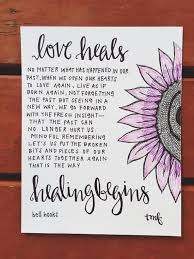 love heals
NO MATTER WHAT HAS HAPPENED IN OUR
PAST, WHEN WE OPEN OUR HEARTS
TO LOVE AGAIN, LIVE AS IF
BORN AGAIN, NOT FORGETTING
THE PAST BUT SEEING IN A
NEW WAY, WE GO FORWARD
WITH THE FRESH INSIGHT—
THAT THE PAST CAN
NO LONGER HURT US.
MINDFUL REMEMBERING
LET'S US PUT THE BROKEN
BITS AND PIECES OF OUR
HEARTS TOGETHER AGAIN
THAT IS THE WAY
healing begins
bell hooks